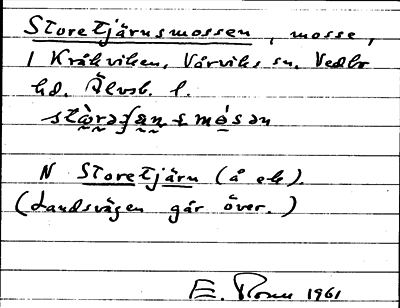 Storetjärnsmossen, mosse,
1 Kråkviken, Vårviks sn, Vedbo
hd. Älvsb. l.
stò̰rəʃæ̰n s mósən
N Storetjärn (å ek).
(Landsvägen går över.)
E. 1961